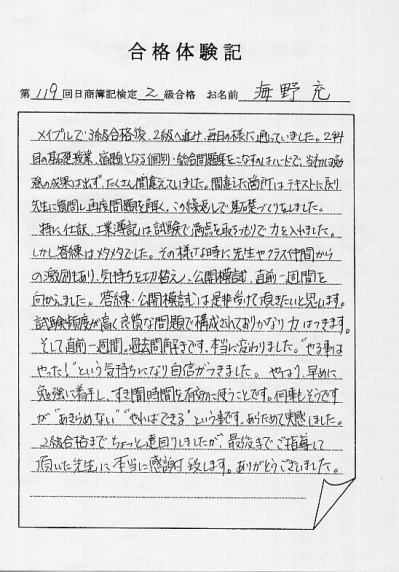 合格体験記
第119回日商簿記検定2級合格 お名前 海野 充
メイプルで3級合格後、2級へ進み、毎日の様に通っていました。2科
目の基礎授業、宿題となる個別・総合問題集をこなすのはハードで、当初は勉
強の成果は出ず、たくさん間違えていました。間違えた箇所はテキストに戻り
先生に質問し再度問題を解く。この繰返しで基礎づくりをしました。
特に仕訳、工業簿記は試験で満点を取るつもりで力を入れました。
しかし答練はメタメタでした。その様な時に先生やクラス仲間から
の激励もあり、気持ちを切替え、公開模試、直前一週間を
向かえました。答練・公開模試は是非受けて頂きたいと思います。
試験頻度が高く良質な問題で構成されておりかなり力はつきます。
そして直前一週間。過去問解きです。本当に変わりました。“やる事は
やった!”という気持ちになり自信がつきました。やはり、早めに
勉強に着手し、すき間時間を有効に使うことです。何事もそうです
が“あきらめない”“やればできる”という事です。あらためて実感しました。
2級合格までちょっと遠回りしましたが、最後までご指導して
頂いた先生に本当に感謝致します。ありがとうございました。